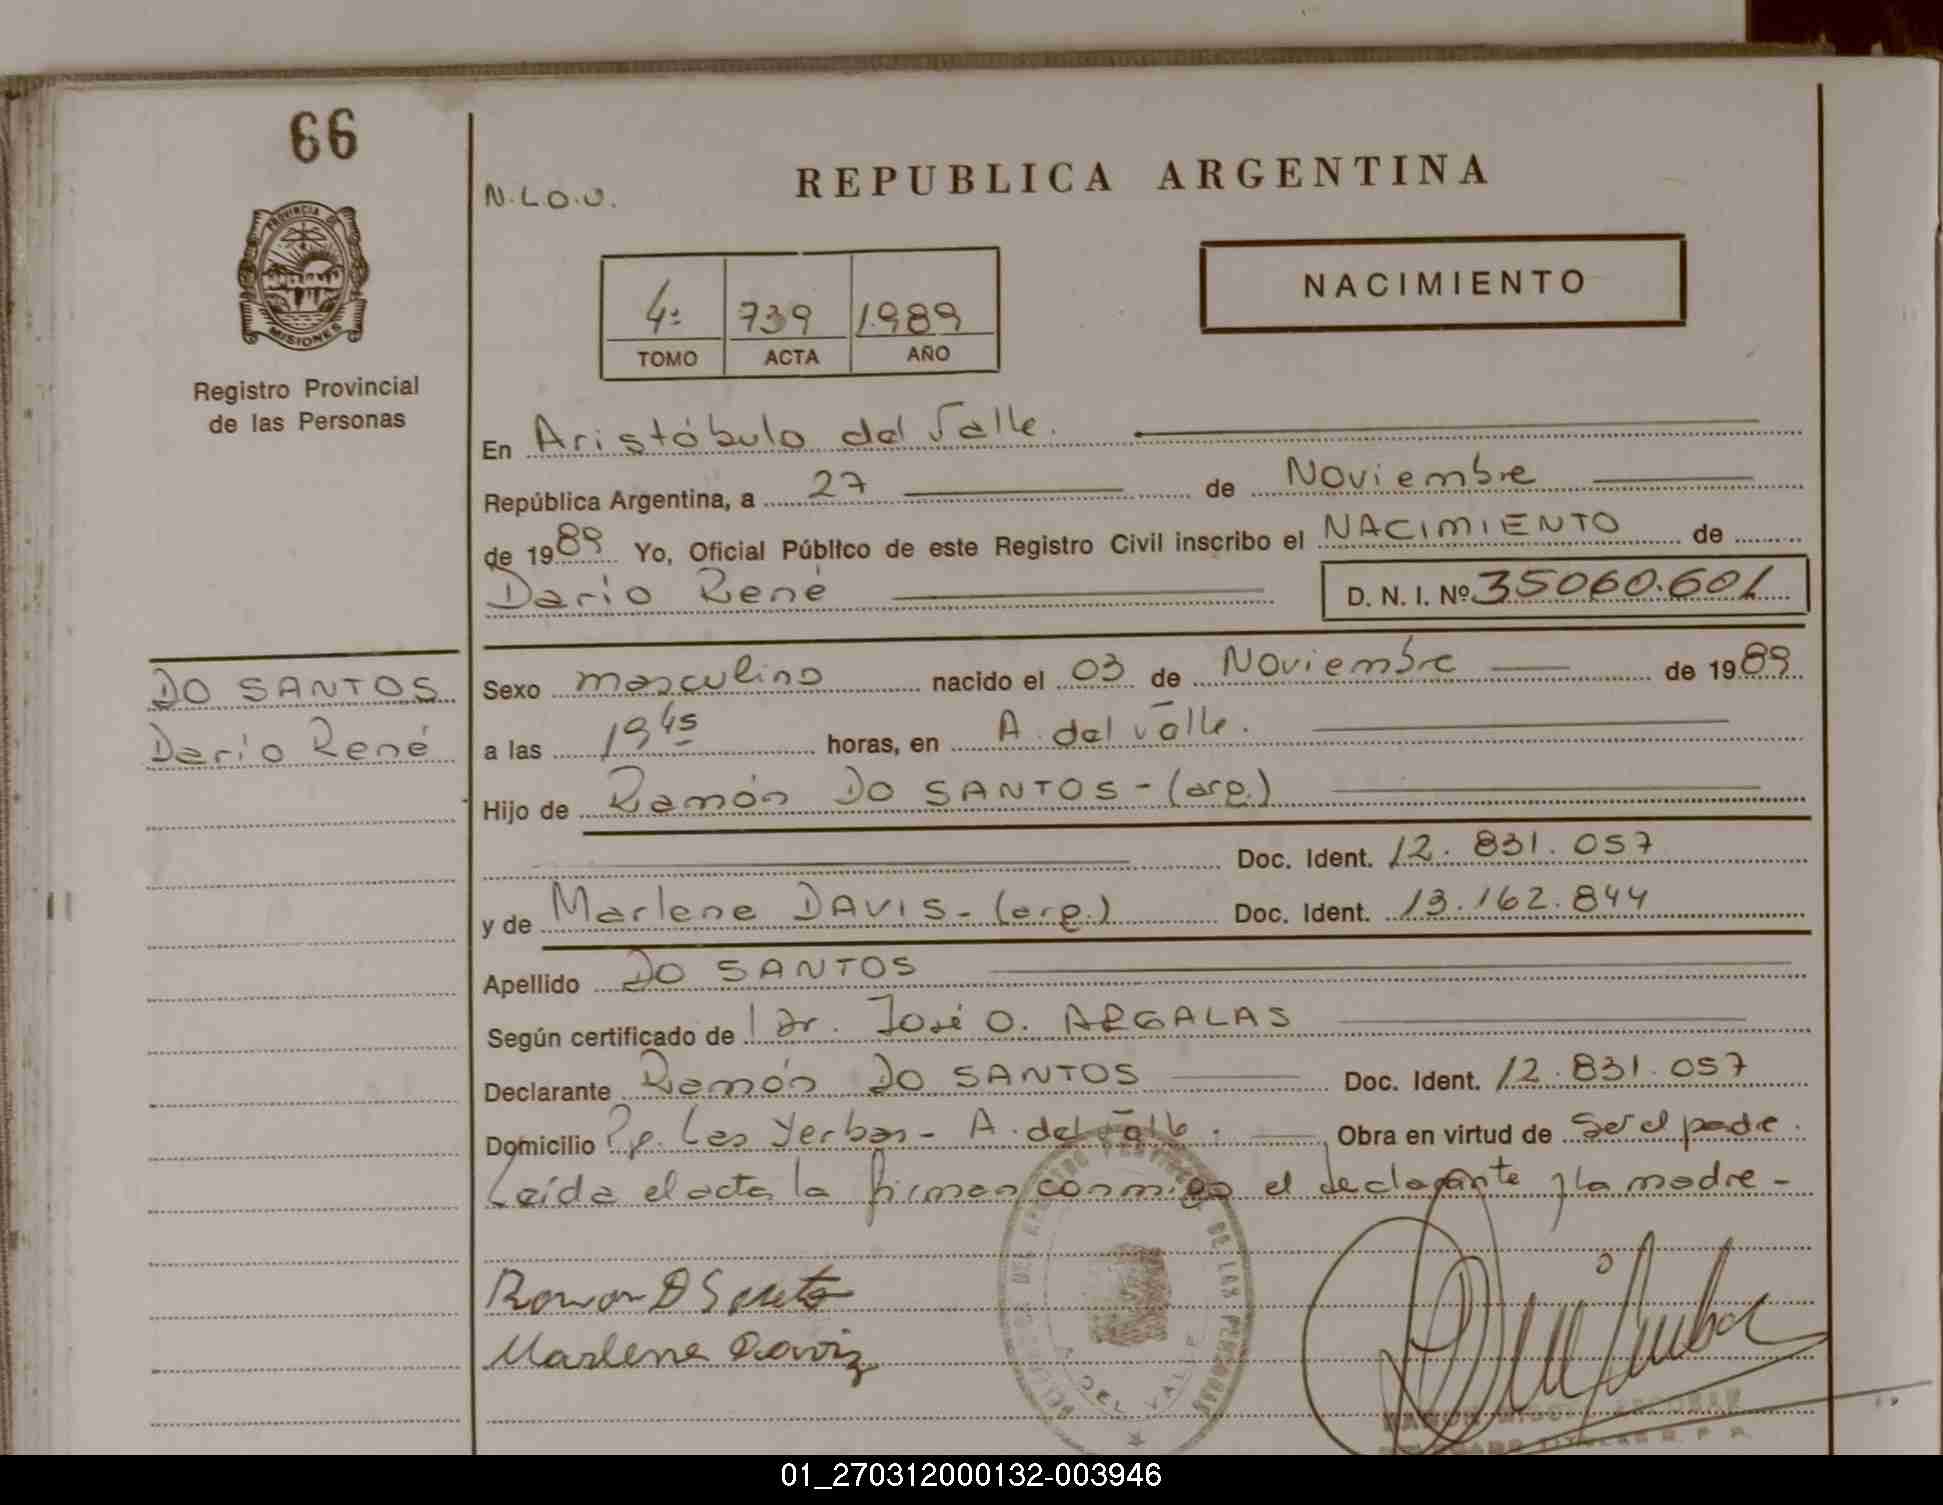 66
PROVINCIA DE
MISIONES
Registro Provincial
de las Personas
DO SANTOS
Darío René
N.L.O.U.
REPUBLICA ARGENTINA
4º 739 1.989
TOMO ACTA AÑO
NACIMIENTO
En Aristóbulo del Valle.
República Argentina, a 27 de Noviembre
de 1989 Yo, Oficial Público de este Registro Civil inscribo el NACIMIENTO de
Darío René D. N. I. Nº 35060.601
Sexo masculino nacido el 03 de Noviembre de 1989
a las 19 45 horas, en A. del Valle.
Hijo de Ramón DO SANTOS - (arg.)
Doc. Ident. 12.831.057
y de Marlene DAVIS - (arg.) Doc. Ident. 13.162.844
Apellido DO SANTOS
Según certificado de Dr. José O. ARGALAS
Declarante Ramón DO SANTOS Doc. Ident. 12.831.057
Domicilio Pje. Las Yerbas - A. del Valle. Obra en virtud de Ser el padre.
Leída el acta la firman conmigo el declarante y la madre -
Marlene
DE LAS PERSONAS
A. DEL VALLE
01_270312000132-003946